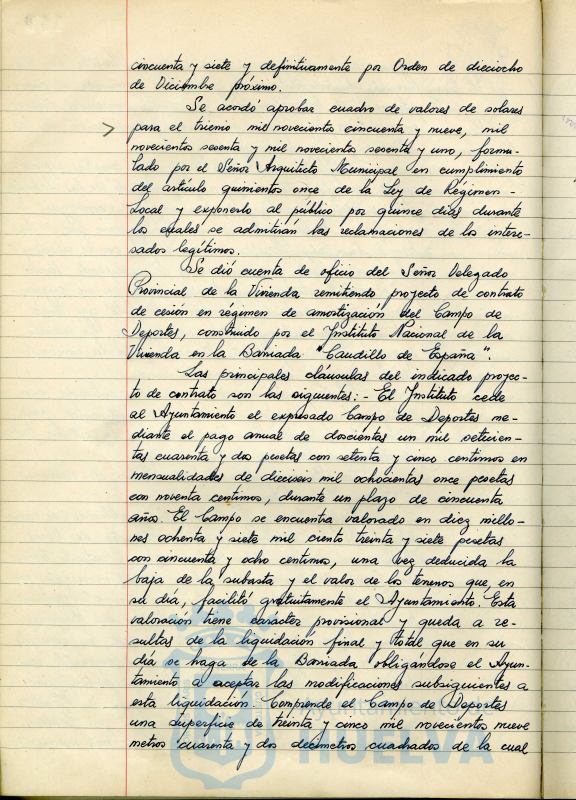 cincuenta y siete y definitivamente por Orden de dieciocho
de Diciembre próximo.
Se acordó aprobar cuadro de valores de solares
para el trienio mil novecientos cincuenta y nueve, mil
novecientos sesenta y mil novecientos sesenta y uno, formu-
lado por el Señor Arquitecto Municipal en cumplimiento
del artículo quinientos once de la Ley de Régimen -
Local y exponerlo al público por quince días durante
los cuales se admitirán las reclamaciones de los intere-
sados legítimos.
Se dió cuenta de oficio del Señor Delegado
Provincial de la Vivienda remitiendo proyecto de contrato
de cesión en regimen de amortización del Campo de
Deportes, construido por el Instituto Nacional de la
Vivienda en la Barriada "Caudillo de España".
Las principales cláusulas del indicado proyec-
to de contrato son las siguientes: - El Instituto cede
al Ayuntamiento el expresado Campo de Deportes me-
diante el pago anual de doscientas un mil setecien-
tas cuarenta y dos pesetas con setenta y cinco centimos en
mensualidades de dieciseis mil ochocientas once pesetas
con noventa centimos, durante un plazo de cincuenta
años. El Campo se encuentra valorado en diez millo-
nes ochenta y siete mil ciento treinta y siete pesetas
con cincuenta y ocho centimos, una vez deducida la
baja de la subasta y el valor de los terrenos que, en
su día, facilitó gratuitamente el Ayuntamiento. Esta
valoración tiene carácter provisional y queda a re-
sultas de la liquidación final y total que en su
día se haga de la Barriada obligándose el Ayun-
tamiento a aceptar las modificaciones subsiguientes a
esta liquidación. Comprende el Campo de Deportes
una superficie de treinta y cinco mil novecientos nueve
metros cuarenta y dos decimetros cuadrados de la cual
Ayuntamiento de
HUELVA